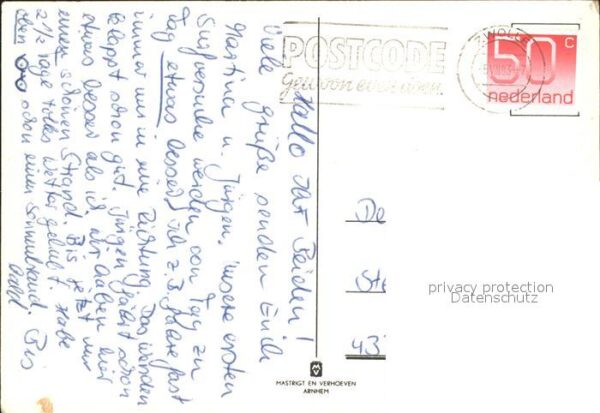 Hallo Ihr Beiden!
Viele Grüße senden Euch
Martina u. Jürgen. Unsere ersten
Surfversuche werden von Tag zu
Tag etwas besser, ich z.B. fahre fast
immer nur in eine Richtung. Das Wenden
klappt schon gut. Jürgen fährt schon
etwas besser als ich. Wir haben hier
einen schönen Strand. Bis jetzt nur
2½ Tage tolles Wetter gehabt. Habe
schon einen Sonnenbrand. Bis
bald
oben
POSTCODE
Gewoon even doen.
ZWOLLE
50 c
nederland
De
Ste
43
privacy protection
Datenschutz
MASTRIGT EN VERHOEVEN
ARNHEM